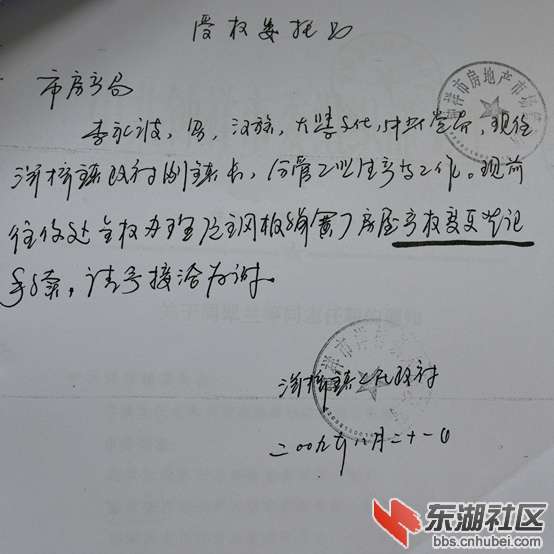 授权委托书
市房产局
李礼波,男,汉族,大学文化,中共党员,现任
洋梓镇政府副镇长,分管工业生产与工作。现前
往你处全权办理 房屋产权变更登记
手续,请予接洽为谢。
洋梓镇人民政府
二00九年八月二十一日
东湖社区
bbs.cnhubei.com